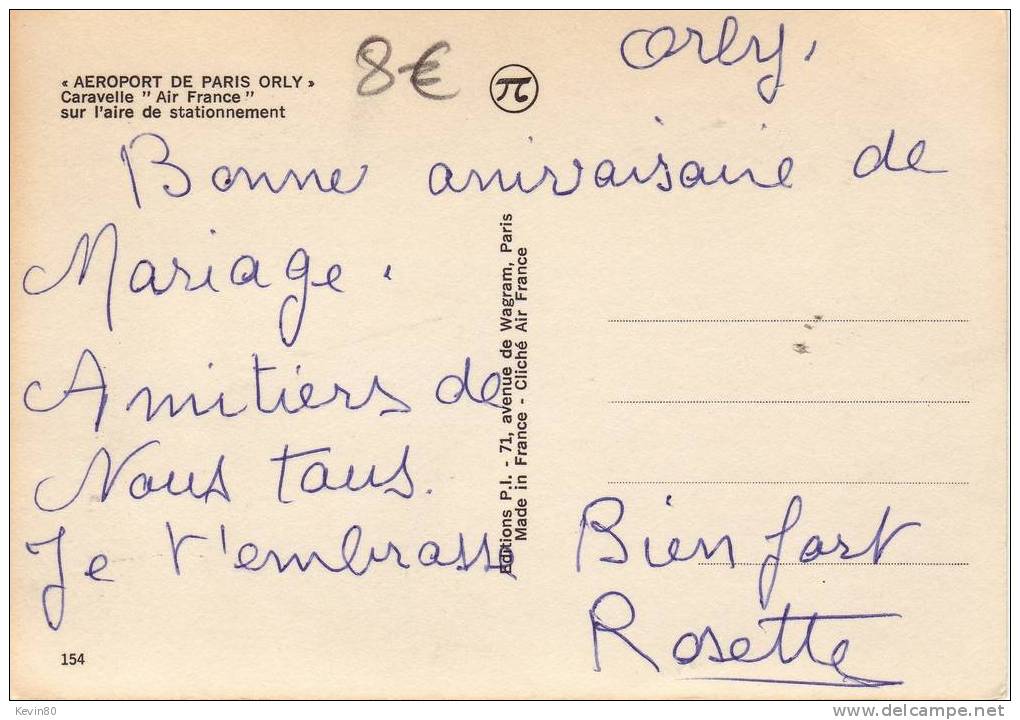 Orly.
8€
« AEROPORT DE PARIS ORLY »
Caravelle " Air France "
sur l'aire de stationnement
Bonne anivaisaire de
Mariage.
Amitiers de
Nous tous.
Je t'embrasse
Bien fort
Rosette
Editions P.I. - 71, avenue de Wagram, Paris
Made in France - Cliché Air France
154
Kevin80
www.delcampe.net